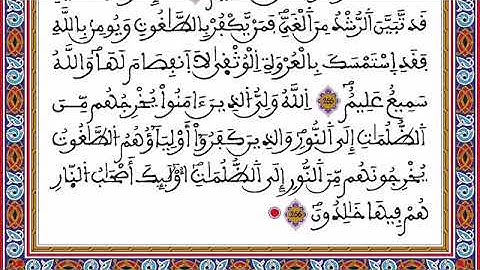 قَد تَّبَيَّنَ اَلرُّشْدُ مِنَ اَلْغَيِّ فَمَنْ يَّكْفُرْ بِالطَّٰغُوتِ وَيُومِنۢ بِاللَّهِ
فَقَدِ اِسْتَمْسَكَ بِالْعُرْوَةِ اِلْوُثْق۪يٰ لَا اَنفِصَامَ لَهَا وَاللَّهُ
سَمِيعٌ عَلِيمٌ 255 اِ۬للَّهُ وَلِيُّ اُ۬لذِينَ ءَامَنُواْ يُخْرِجُهُم مِّنَ
اَ۬لظُّلُمَٰتِ إِلَى اَ۬لنُّورِ وَالذِينَ كَفَرُواْ أَوْلِيَآؤُهُمُ اُ۬لطَّٰغُوتُ
يُخْرِجُونَهُم مِّنَ اَ۬لنُّورِ إِلَى اَ۬لظُّلُمَٰتِ أُوْلَٰٓئِكَ أَصْحَٰبُ اُ۬لنّ۪ارِ
هُمْ فِيهَا خَٰلِدُونَ 256